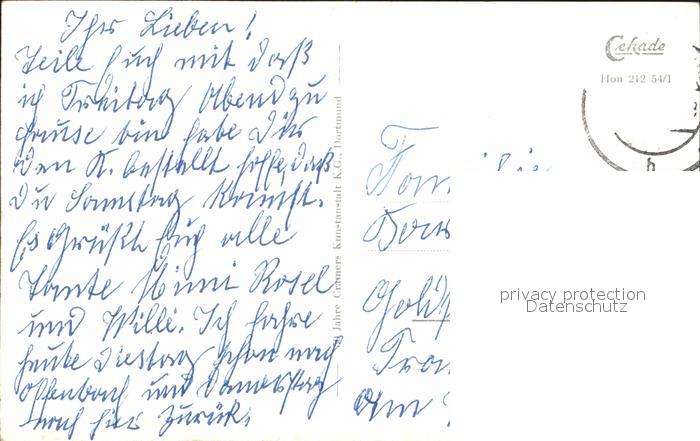 Ihr Lieben!
Teile Euch mit daß
ich Freitag Abend zu
Hause bin habe
den K. bestellt hoffe, daß
Du Samstag kommst.
Es Grüßt Euch alle
Tante Mimi Rosel
und Willi. Ich fahre
heute Diestag schon nach
Offenbach und Donnerstag
nach hier zurück.
50 Jahre Cramers Kunstanstalt K.G., Dortmund
Cekade
Hon 212 54/1
h
Fam
privacy protection
Datenschutz